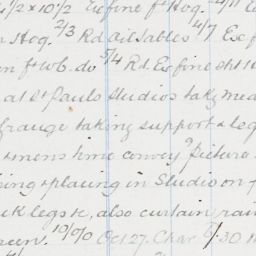 1/2 x 10 1/2 Ex fine ft Hog. 4/11
Hog. 2/3 Rd Oil Sables 4/7 Ex f
ft Wh. do 5/4 Rd Ex fine sht
at St Pauls Studios taky mea
Grange taking support & leg
mens time convey g picture
ing & placing in Studio on
k legs &c, also curtain rai
10/0/0 Oct 27. Char 9.30